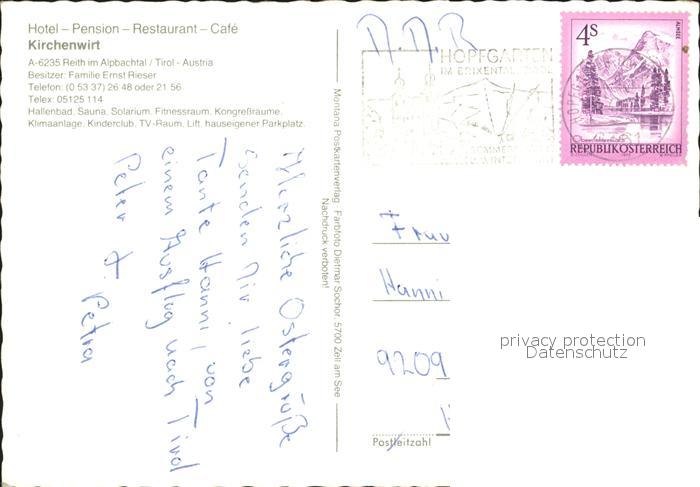 Hotel – Pension – Restaurant – Café
Kirchenwirt
A-6235 Reith im Alpbachtal / Tirol - Austria
Besitzer: Familie Ernst Rieser
Telefon: (0 53 37) 26 48 oder 21 56
Telex: 05125 114
Hallenbad, Sauna, Solarium, Fitnessraum, Kongreßräume,
Klimaanlage, Kinderclub, TV-Raum, Lift, hauseigener Parkplatz.
Herzliche Ostergrüße
senden Dir liebe
Tante Hanni, von
einem Ausflug nach Tirol
Peter + Petra
Montana Postkartenverlag · Farbfoto Dietmar Sochor, 5700 Zell am See
Nachdruck verboten!
HOPFGARTEN
IM BRIXENTAL, TIROL
SOMMER
WINTER
4S
ALMSEE
REPUBLIK ÖSTERREICH
Frau
Hanni
9209
Postleitzahl
privacy protection
Datenschutz